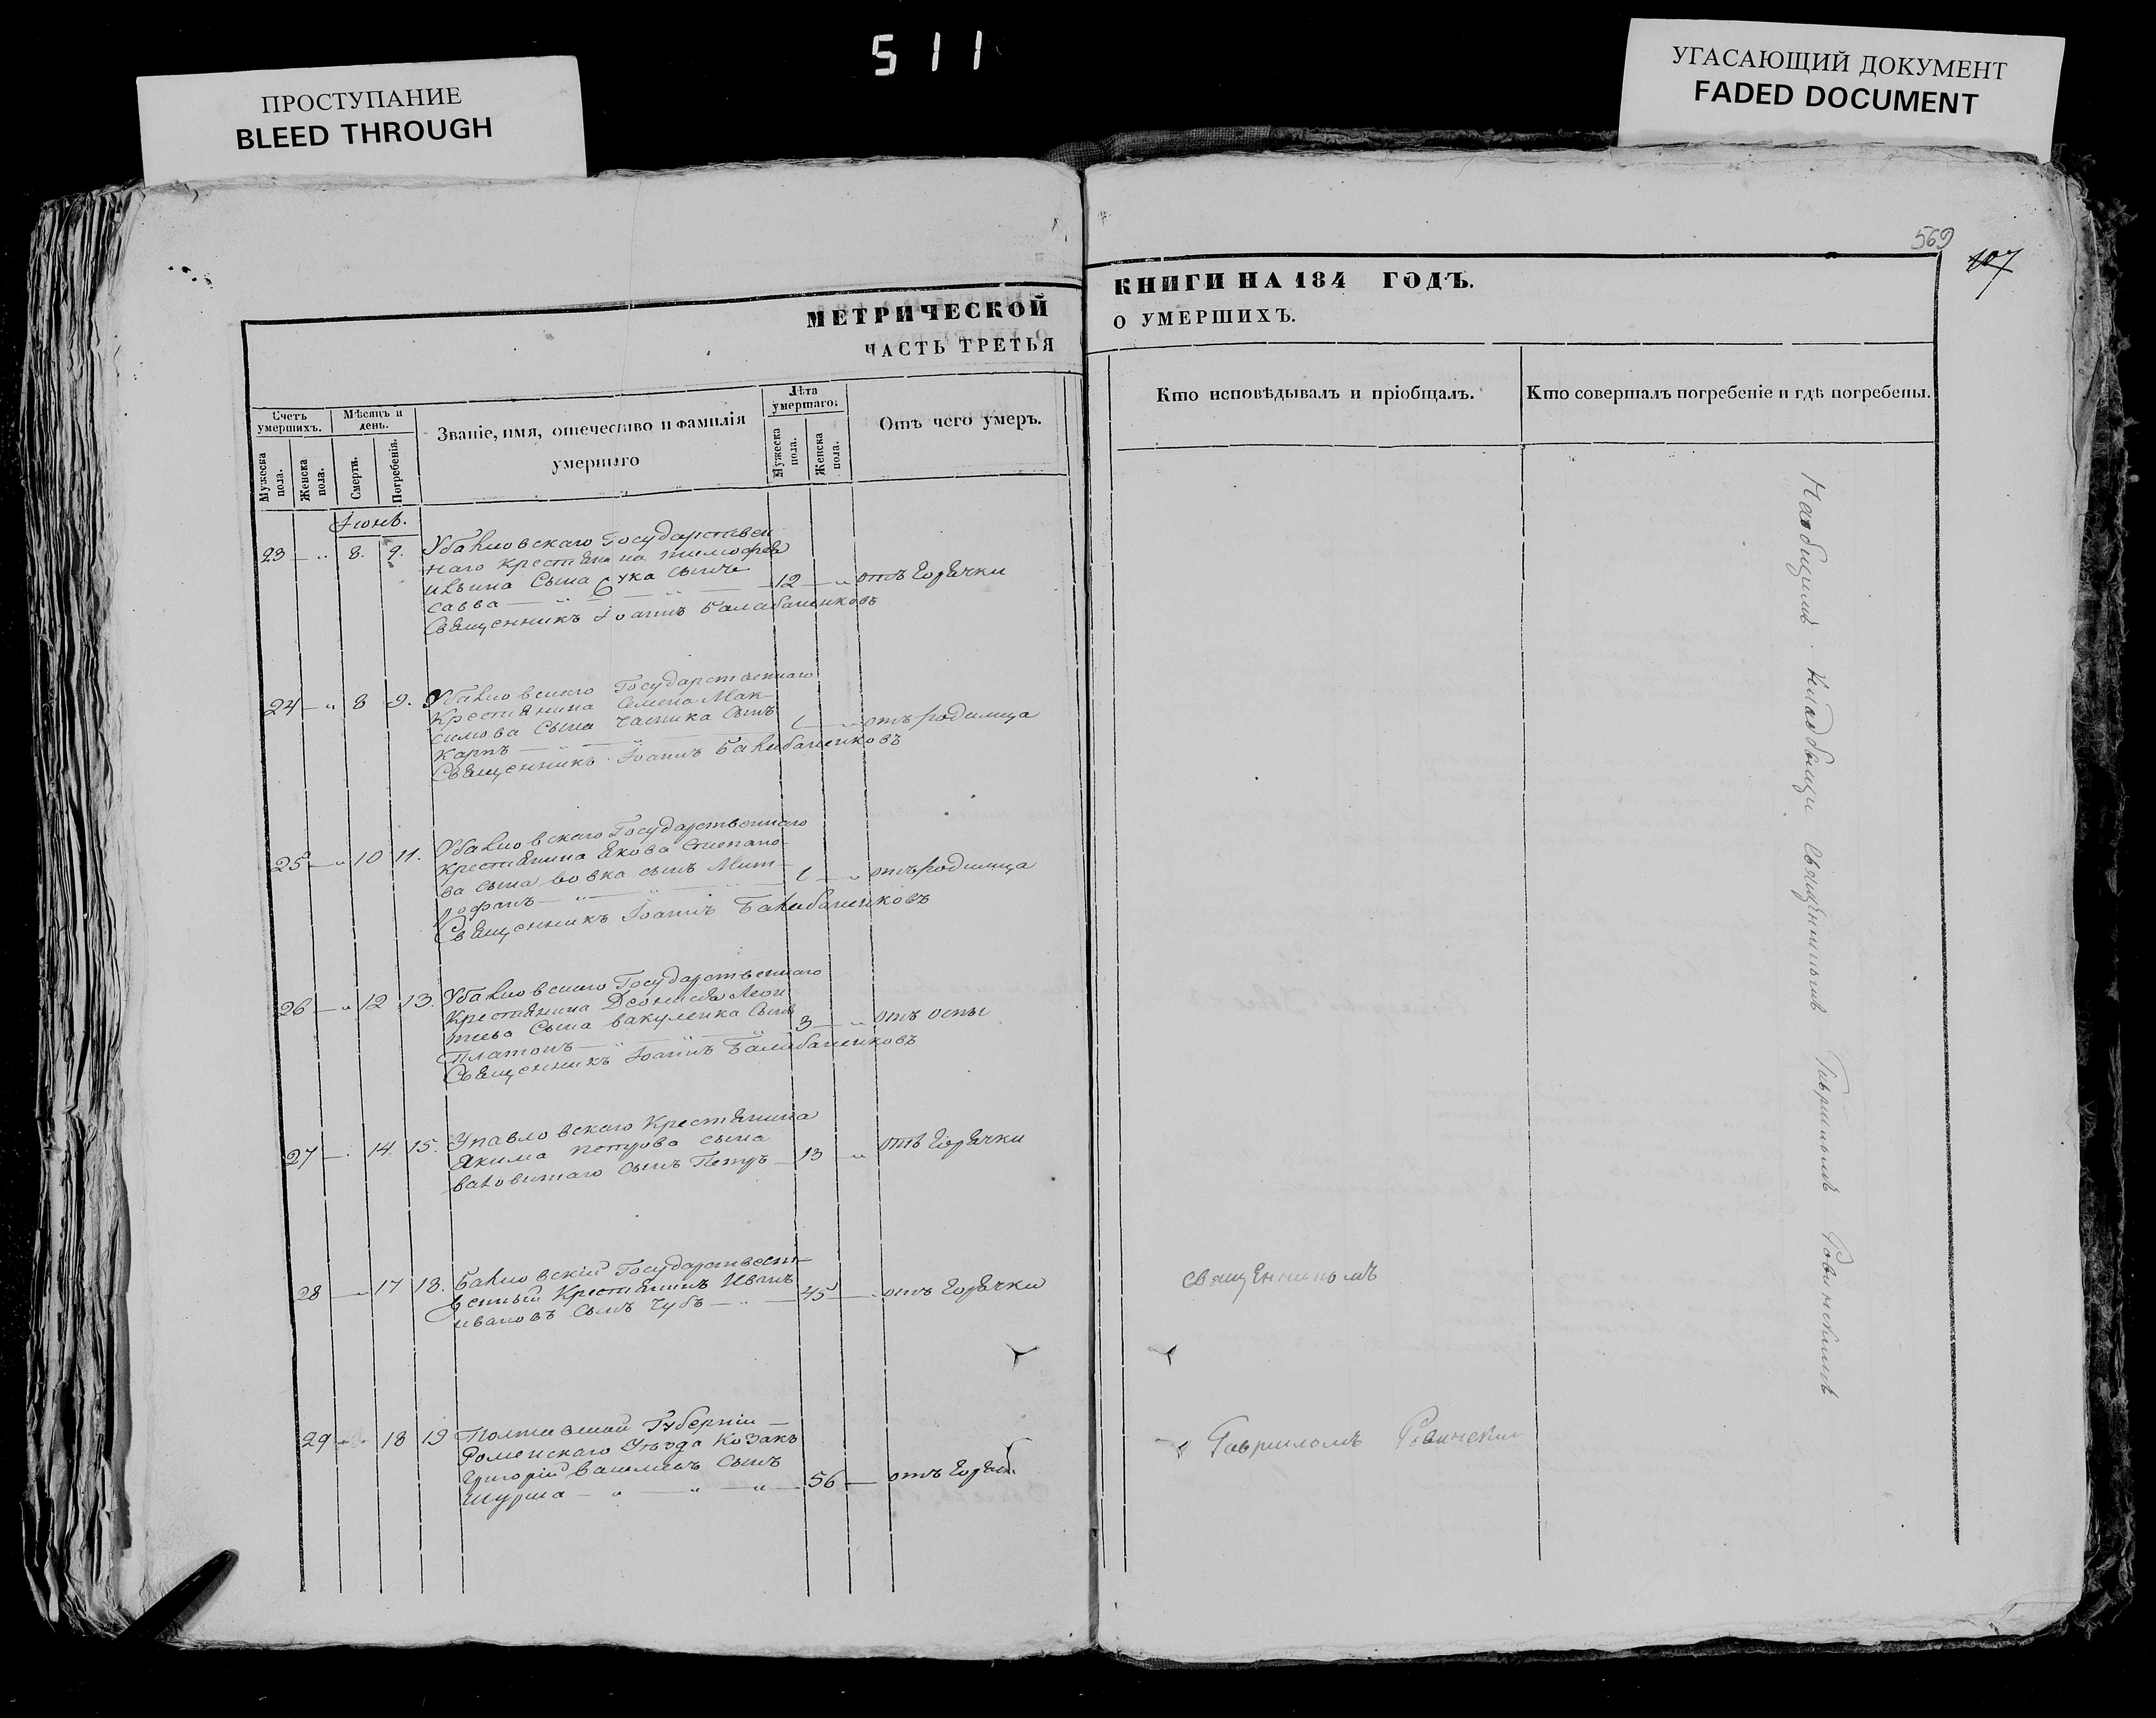 511
ПРОСТУПАНИЕ
BLEED THROUGH
УГАСАЮЩИЙ ДОКУМЕНТ
FADED DOCUMENT
569
107
МЕТРИЧЕСКОЙ
ЧАСТЬ ТРЕТЬЯ
КНИГИ НА 184 ГОДЪ.
О УМЕРШИХЪ.
Счетъ умершихъ.
Мужеска пола.
Женска пола.
Мѣсяцъ и день.
Смерти.
Погребенія.
Званіе, имя, отечество и фамилія
умершаго
Лѣта умершаго:
Мужеска пола.
Женска пола.
Отъ чего умеръ.
Кто исповѣдывалъ и пріобщалъ.
Кто совершалъ погребеніе и гдѣ погребены.
Іюнь.
23 — „ 8. 9. Государствен
наго крестьянина тимофея
сына сынъ
савва — „ — „ — 12 — „ отъ горячки
Священникъ Іоаннъ
24 — „ 8 9. Государственнаго
Крестьянина Семена Мак-
симова сына сынъ
Карпъ — „ — „ — 1 — „ отъ родимца
Священникъ Іоаннъ
25 — „ 10 11. Государственнаго
крестьянина Якова Степано-
ва сына вовка сынъ Мит-
рофанъ — „ — „ — 1 — „ отъ родимца
Священникъ Іоаннъ
26 — „ 12 13. Государственнаго
Крестьянина Леон
тиева Сына вакуленка Сынъ
Платонъ — „ — „ — 3 — „ отъ оспы
Священникъ Іоаннъ
27 — „ 14. 15. Упавловскаго Крестьянина
Якима петрова сына
сынъ Петръ — 13 — „ отъ горячки
28 — „ 17 18. Государвест-
венный Крестьянинъ Иванъ
ивановъ сынъ Чубъ — „ — 45 — „ отъ горячки
Священникомъ
29 — „ 18 19 Полтавской Губерніи —
Роменскаго Уѣзда Козакъ
Григорій сынъ
— „ — „ — „ — 56 — отъ
Гавриломъ
Священникомъ Гавриломъ